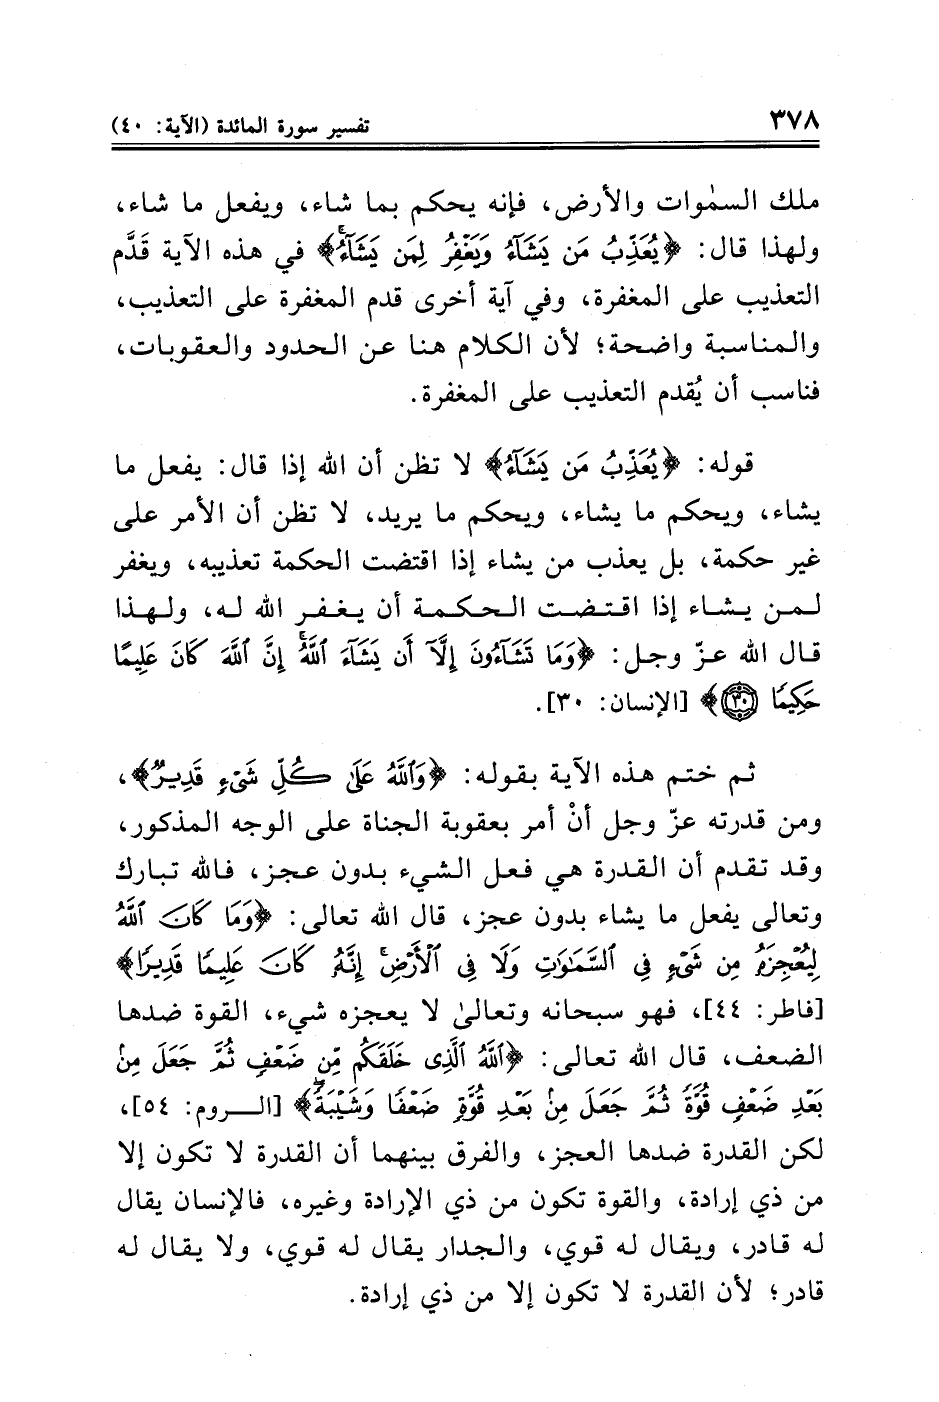 ٣٧٨
تفسير سورة المائدة (الآية: ٤٠)
ملك السمٰوات والأرض، فإنه يحكم بما شاء، ويفعل ما شاء،
ولهذا قال: ﴿يُعَذِّبُ مَن يَشَآءُ وَيَغْفِرُ لِمَن يَشَآءُۗ﴾ في هذه الآية قَدَّم
التعذيب على المغفرة، وفي آية أخرى قدم المغفرة على التعذيب،
والمناسبة واضحة؛ لأن الكلام هنا عن الحدود والعقوبات،
فناسب أن يُقدم التعذيب على المغفرة.
قوله: ﴿يُعَذِّبُ مَن يَشَآءُ﴾ لا تظن أن الله إذا قال: يفعل ما
يشاء، ويحكم ما يشاء، ويحكم ما يريد، لا تظن أن الأمر على
غير حكمة، بل يعذب من يشاء إذا اقتضت الحكمة تعذيبه، ويغفر
لمن يشاء إذا اقتضت الحكمة أن يغفر الله له، ولهذا
قال الله عزّ وجل: ﴿وَمَا تَشَآءُونَ إِلَّآ أَن يَشَآءَ ٱللَّهُۚ إِنَّ ٱللَّهَ كَانَ عَلِيمًا
حَكِيمًا ٣٠﴾ [الإنسان: ٣٠].
ثم ختم هذه الآية بقوله: ﴿وَٱللَّهُ عَلَىٰ كُلِّ شَىْءٍ قَدِيرٌ﴾،
ومن قدرته عزّ وجل أنْ أمر بعقوبة الجناة على الوجه المذكور،
وقد تقدم أن القدرة هي فعل الشيء بدون عجز، فالله تبارك
وتعالى يفعل ما يشاء بدون عجز، قال الله تعالى: ﴿وَمَا كَانَ ٱللَّهُ
لِيُعْجِزَهُۥ مِن شَىْءٍ فِى ٱلسَّمَـٰوَٰتِ وَلَا فِى ٱلْأَرْضِۚ إِنَّهُۥ كَانَ عَلِيمًا قَدِيرًا﴾
[فاطر: ٤٤]، فهو سبحانه وتعالىٰ لا يعجزه شيء، القوة ضدها
الضعف، قال الله تعالى: ﴿ٱللَّهُ ٱلَّذِى خَلَقَكُم مِّن ضَعْفٍ ثُمَّ جَعَلَ مِنۢ
بَعْدِ ضَعْفٍ قُوَّةً ثُمَّ جَعَلَ مِنۢ بَعْدِ قُوَّةٍ ضَعْفًا وَشَيْبَةًۚ﴾ [الـروم: ٥٤]،
لكن القدرة ضدها العجز، والفرق بينهما أن القدرة لا تكون إلا
من ذي إرادة، والقوة تكون من ذي الإرادة وغيره، فالإنسان يقال
له قادر، ويقال له قوي، والجدار يقال له قوي، ولا يقال له
قادر؛ لأن القدرة لا تكون إلا من ذي إرادة.